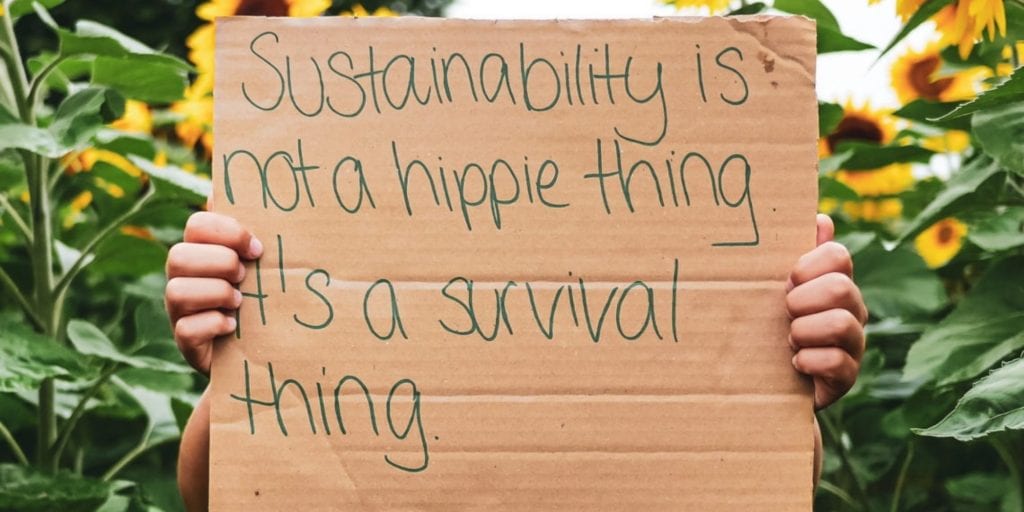 Sustainability is
not a hippie thing.
It's a survival
thing.